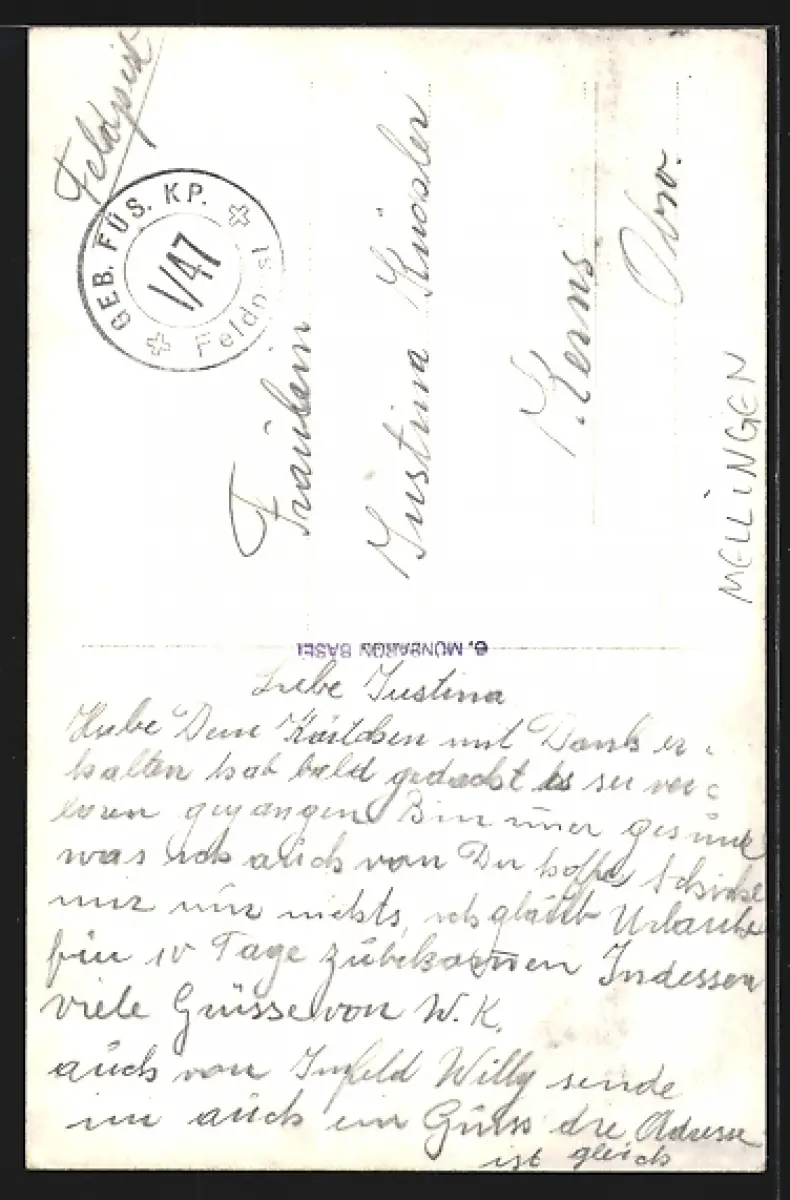 Feldpost
GEB. FÜS. KP.
I/47
Feldpost
Fräulein
Justina Küosler
Kerns.
Obw.
MELLINGEN
E. MÜNBARON BASEL
Liebe Justina
Habe Dein Kärtchen mit Dank er-
halten hab bald gedacht es sei ver-
loren gegangen Bin imer gesund
was ich auch von Dir hoffe Schicke
mir nur nichts, ich glaub Urlaub
für 10 Tage zübekommen Indessen
viele Grüsse von W. K.
auch von Imfeld Willy sende
im auch ein Grüss die Adresse
ist gleich